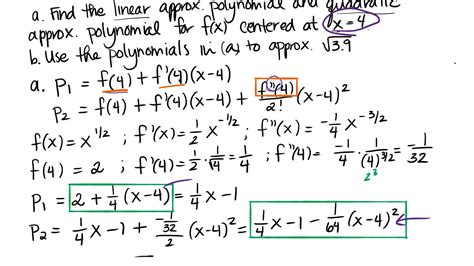 a. Find the linear approx. polynomial and quadratic
approx. polynomial for f(x) centered at x=4.
b. Use the polynomials in (a) to approx. √3.9
a. P₁ = f(4) + f'(4)(x-4)
P₂ = f(4) + f'(4)(x-4) + f''(4)/2! (x-4)²
f(x) = x^(1/2) ; f'(x) = 1/2 x^(-1/2) ; f''(x) = -1/4 x^(-3/2)
f(4) = 2 ; f'(4) = 1/2 · 1/√4 = 1/4 ; f''(4) = -1/4 · 1/(4)^(3/2) = -1/32
2³
P₁ = 2 + 1/4 (x-4) = 1/4 x - 1
P₂ = 1/4 x - 1 + (-1/32)/2 (x-4)² = 1/4 x - 1 - 1/64 (x-4)²